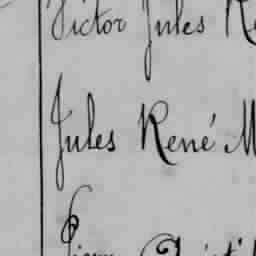 Victor Jules Re
Jules René M